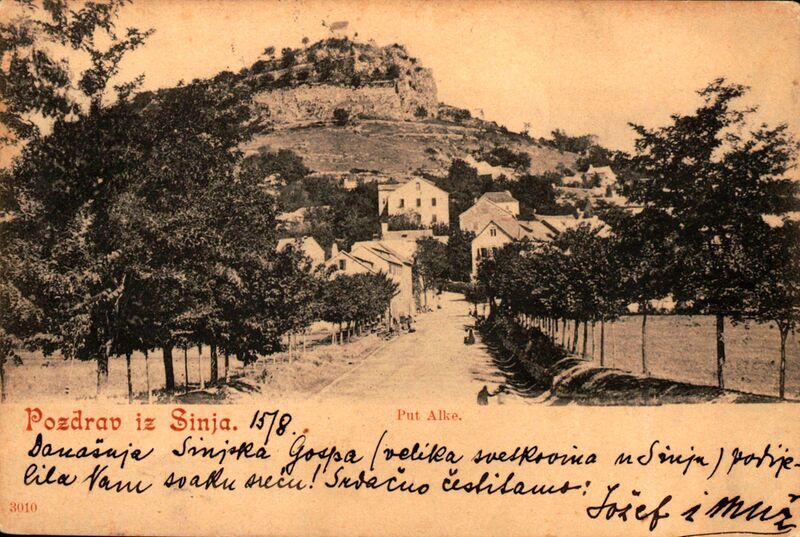 Pozdrav iz Sinja. 15/8.
Put Alke.
Današnja Sinjska Gospa (velika svetkovina u Sinju) podije-
lila Vam svaku sreću! Srdačno čestitamo:
Jožef i
3010